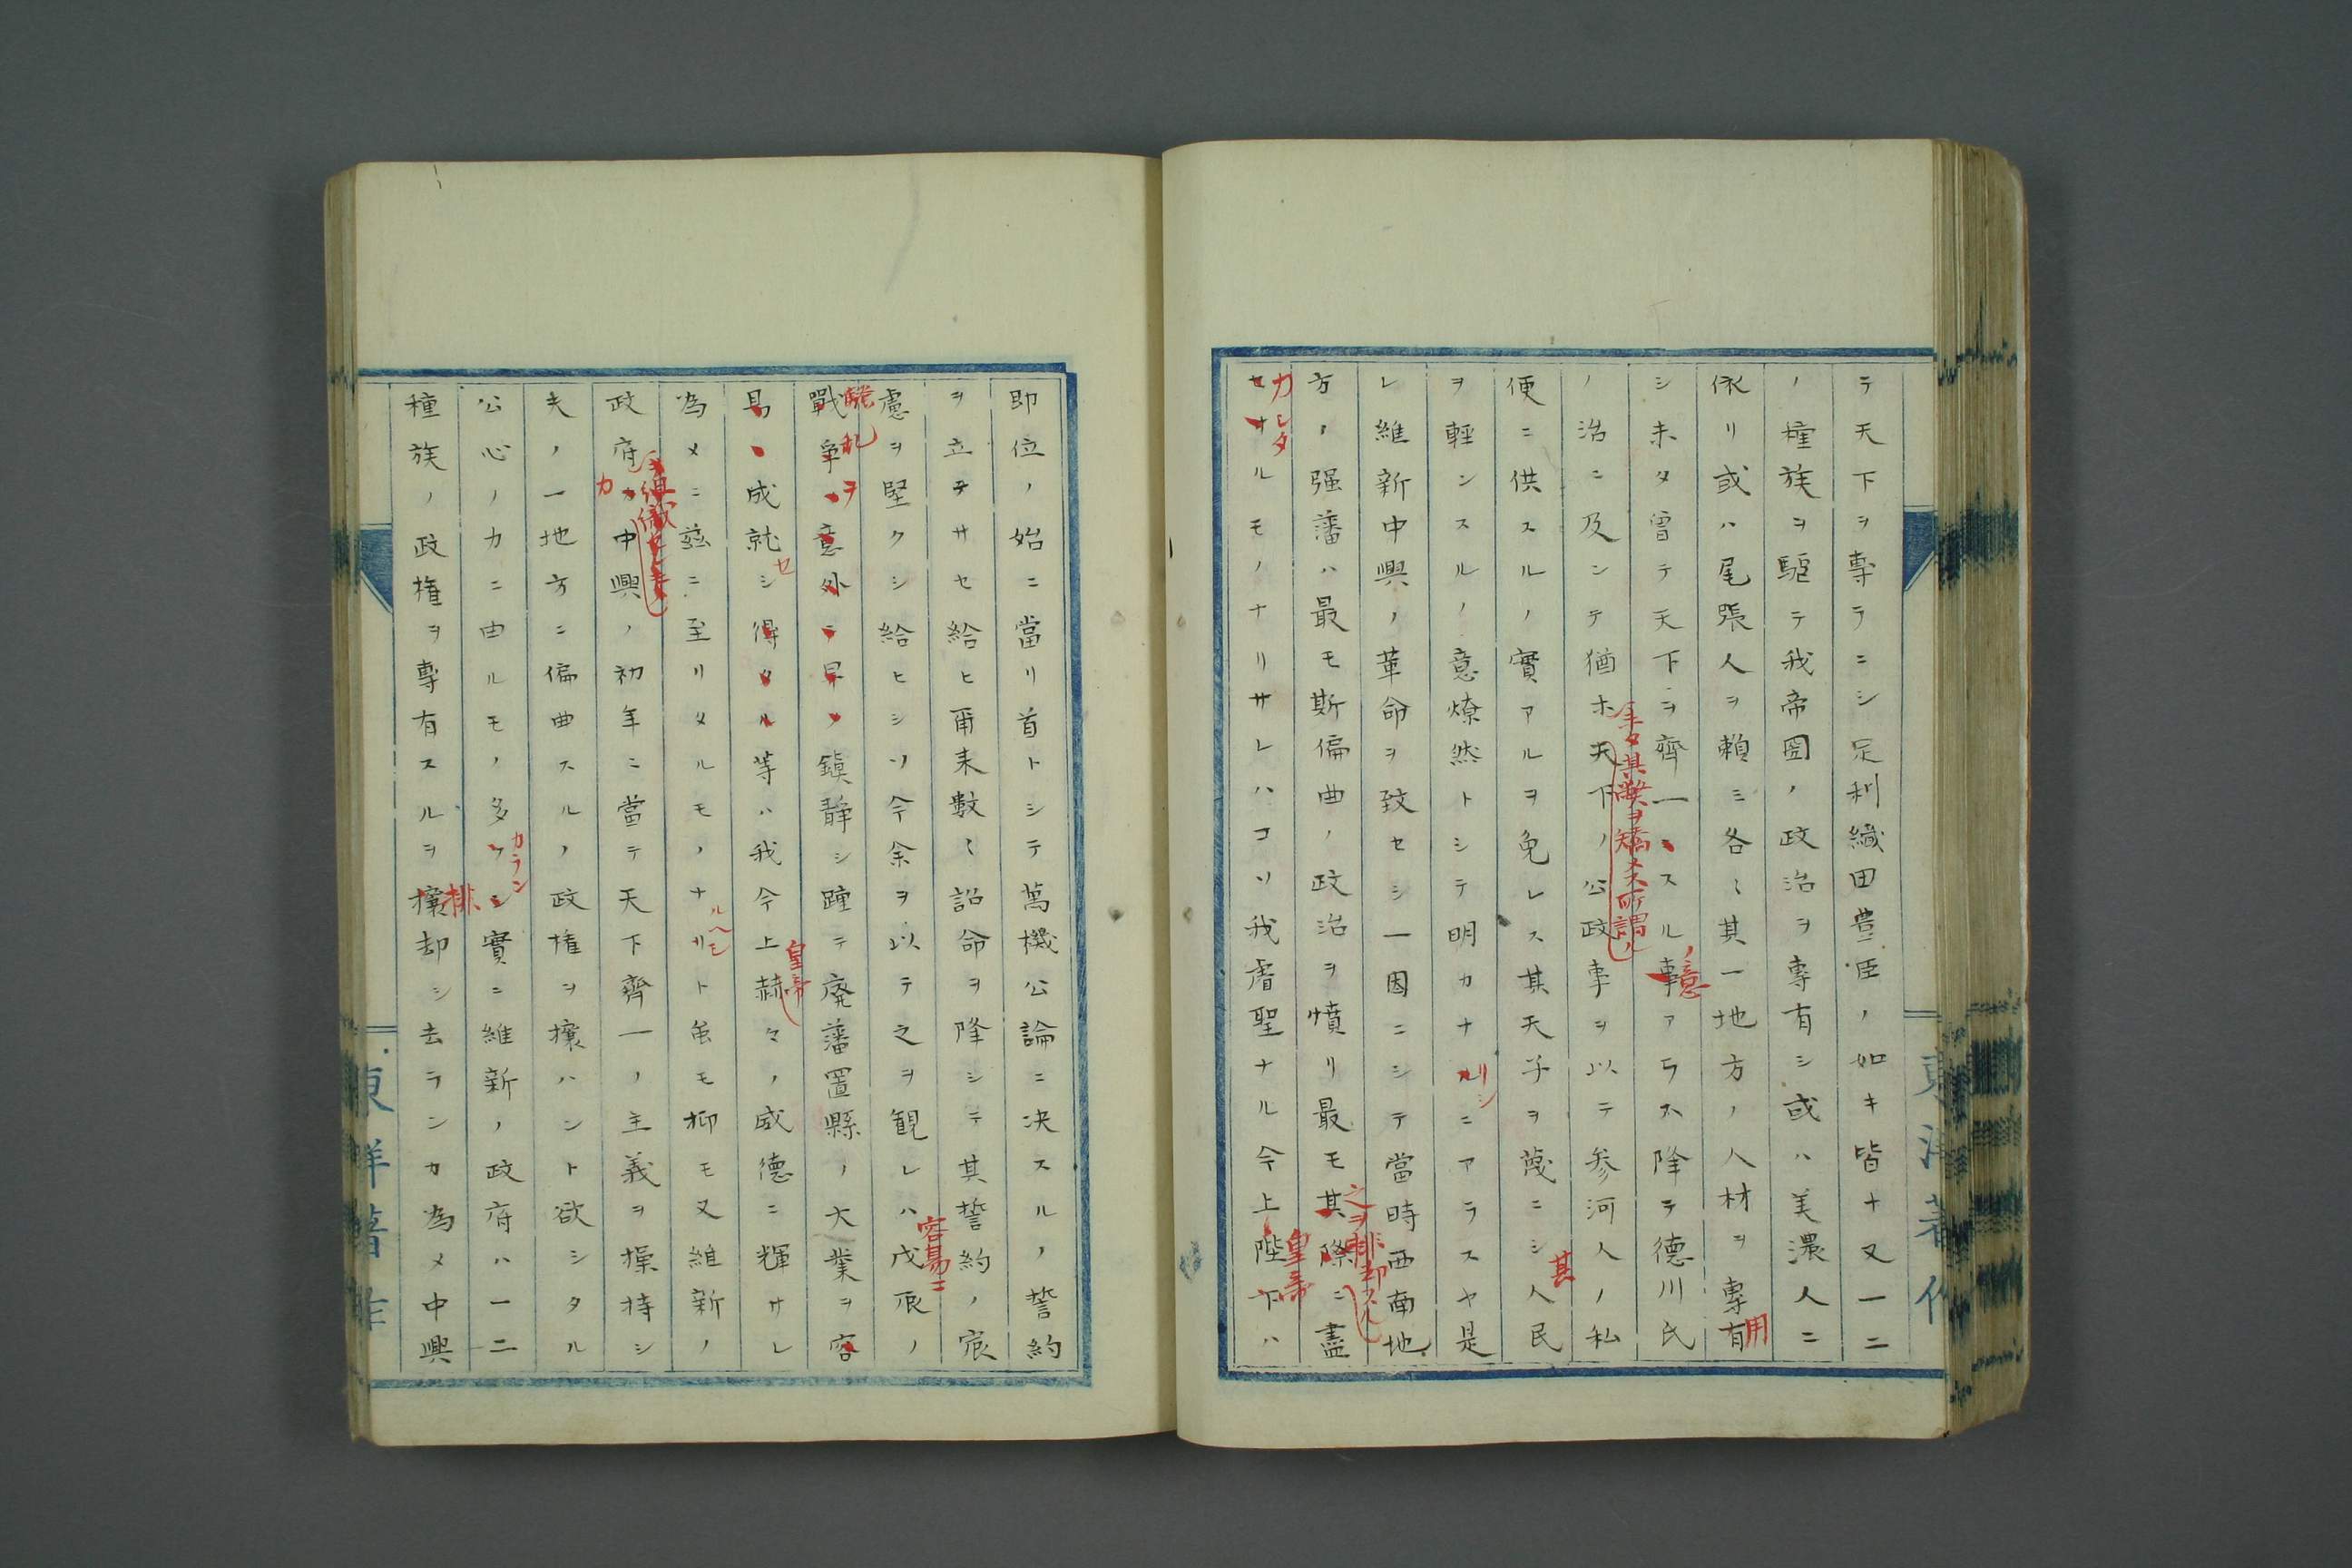 テ天下ヲ專ラニシ足利織田豊臣ノ如キ皆ナ又一二
ノ種族ヲ驅テ我帝国ノ政治ヲ專有シ或ハ美濃人ニ
依リ或ハ尾張人ヲ頼ミ各〻其一地方ノ人材ヲ專有
用
シ未タ曾テ天下ヲ齊一ニスル事アラス降テ德川氏
ノ意
ノ治ニ及ンテ猶ホ天下ノ公政事ヲ以テ参河人ノ私
其弊ヲ矯メス所謂
便ニ供スルノ實アルヲ免レス其天子ヲ蔑ニシ人民
其
ヲ輕ンスルノ意燎然トシテ明カナルニアラスヤ是
リシ
レ維新中興ノ革命ヲ致セシ一因ニシテ當時西南地
方ノ强藩ハ最モ斯偏曲ノ政治ヲ憤リ最モ其際ニ盡
之ヲ排却スルニ
セサルモノナリサレハコソ我睿聖ナル今上陛下ハ
カレタ
皇帝
東洋著作
即位ノ始ニ當リ首トシテ萬機公論ニ决スルノ誓約
ヲ立テサセ給ヒ爾来數〻詔命ヲ降シテ其誓約ノ宸
慮ヲ堅クシ給ヒシソ今余ヲ以テ之ヲ観レハ戊辰ノ
容易ニ
戰争ノ意外ニ早ク鎮靜シ踵テ廃藩置縣ノ大業ヲ容
騒乱ヲ
易ニ成就シ得タル等ハ我今上赫々ノ威德ニ輝サレ
セ
皇帝
為メニ茲ニ至リタルモノナリト虽モ抑モ又維新ノ
ルヘシ
政府カ中興ノ初年ニ當テ天下齊一ノ主義ヲ操持シ
カ
夫ノ一地方ニ偏曲スルノ政権ヲ攘ハント欲シタル
公心ノカニ由ルモノ多シ實ニ維新ノ政府ハ一二
カラン
種族ノ政権ヲ專有スルヲ攘却シ去ランカ為メ中興
排
東洋著作